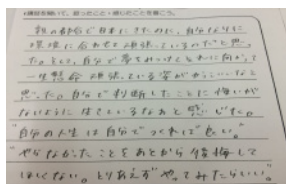 講話を聞いて、思ったこと・感じたことを書こう。
親の都合で日本にきたのに、自分なりに
環境に合わせて頑張っているのだと思っ
た。そして、自分で夢をみつけてそれに向かって
一生懸命頑張っている姿がかっこいいなと
思った。自分で判断したことに悔いが
ないように生きているなあと感じた。
"自分の人生は自分でつくれて良い。"
"やらなかったことをあとから後悔して
ほしくない。とりあえずやってみたらいい。"